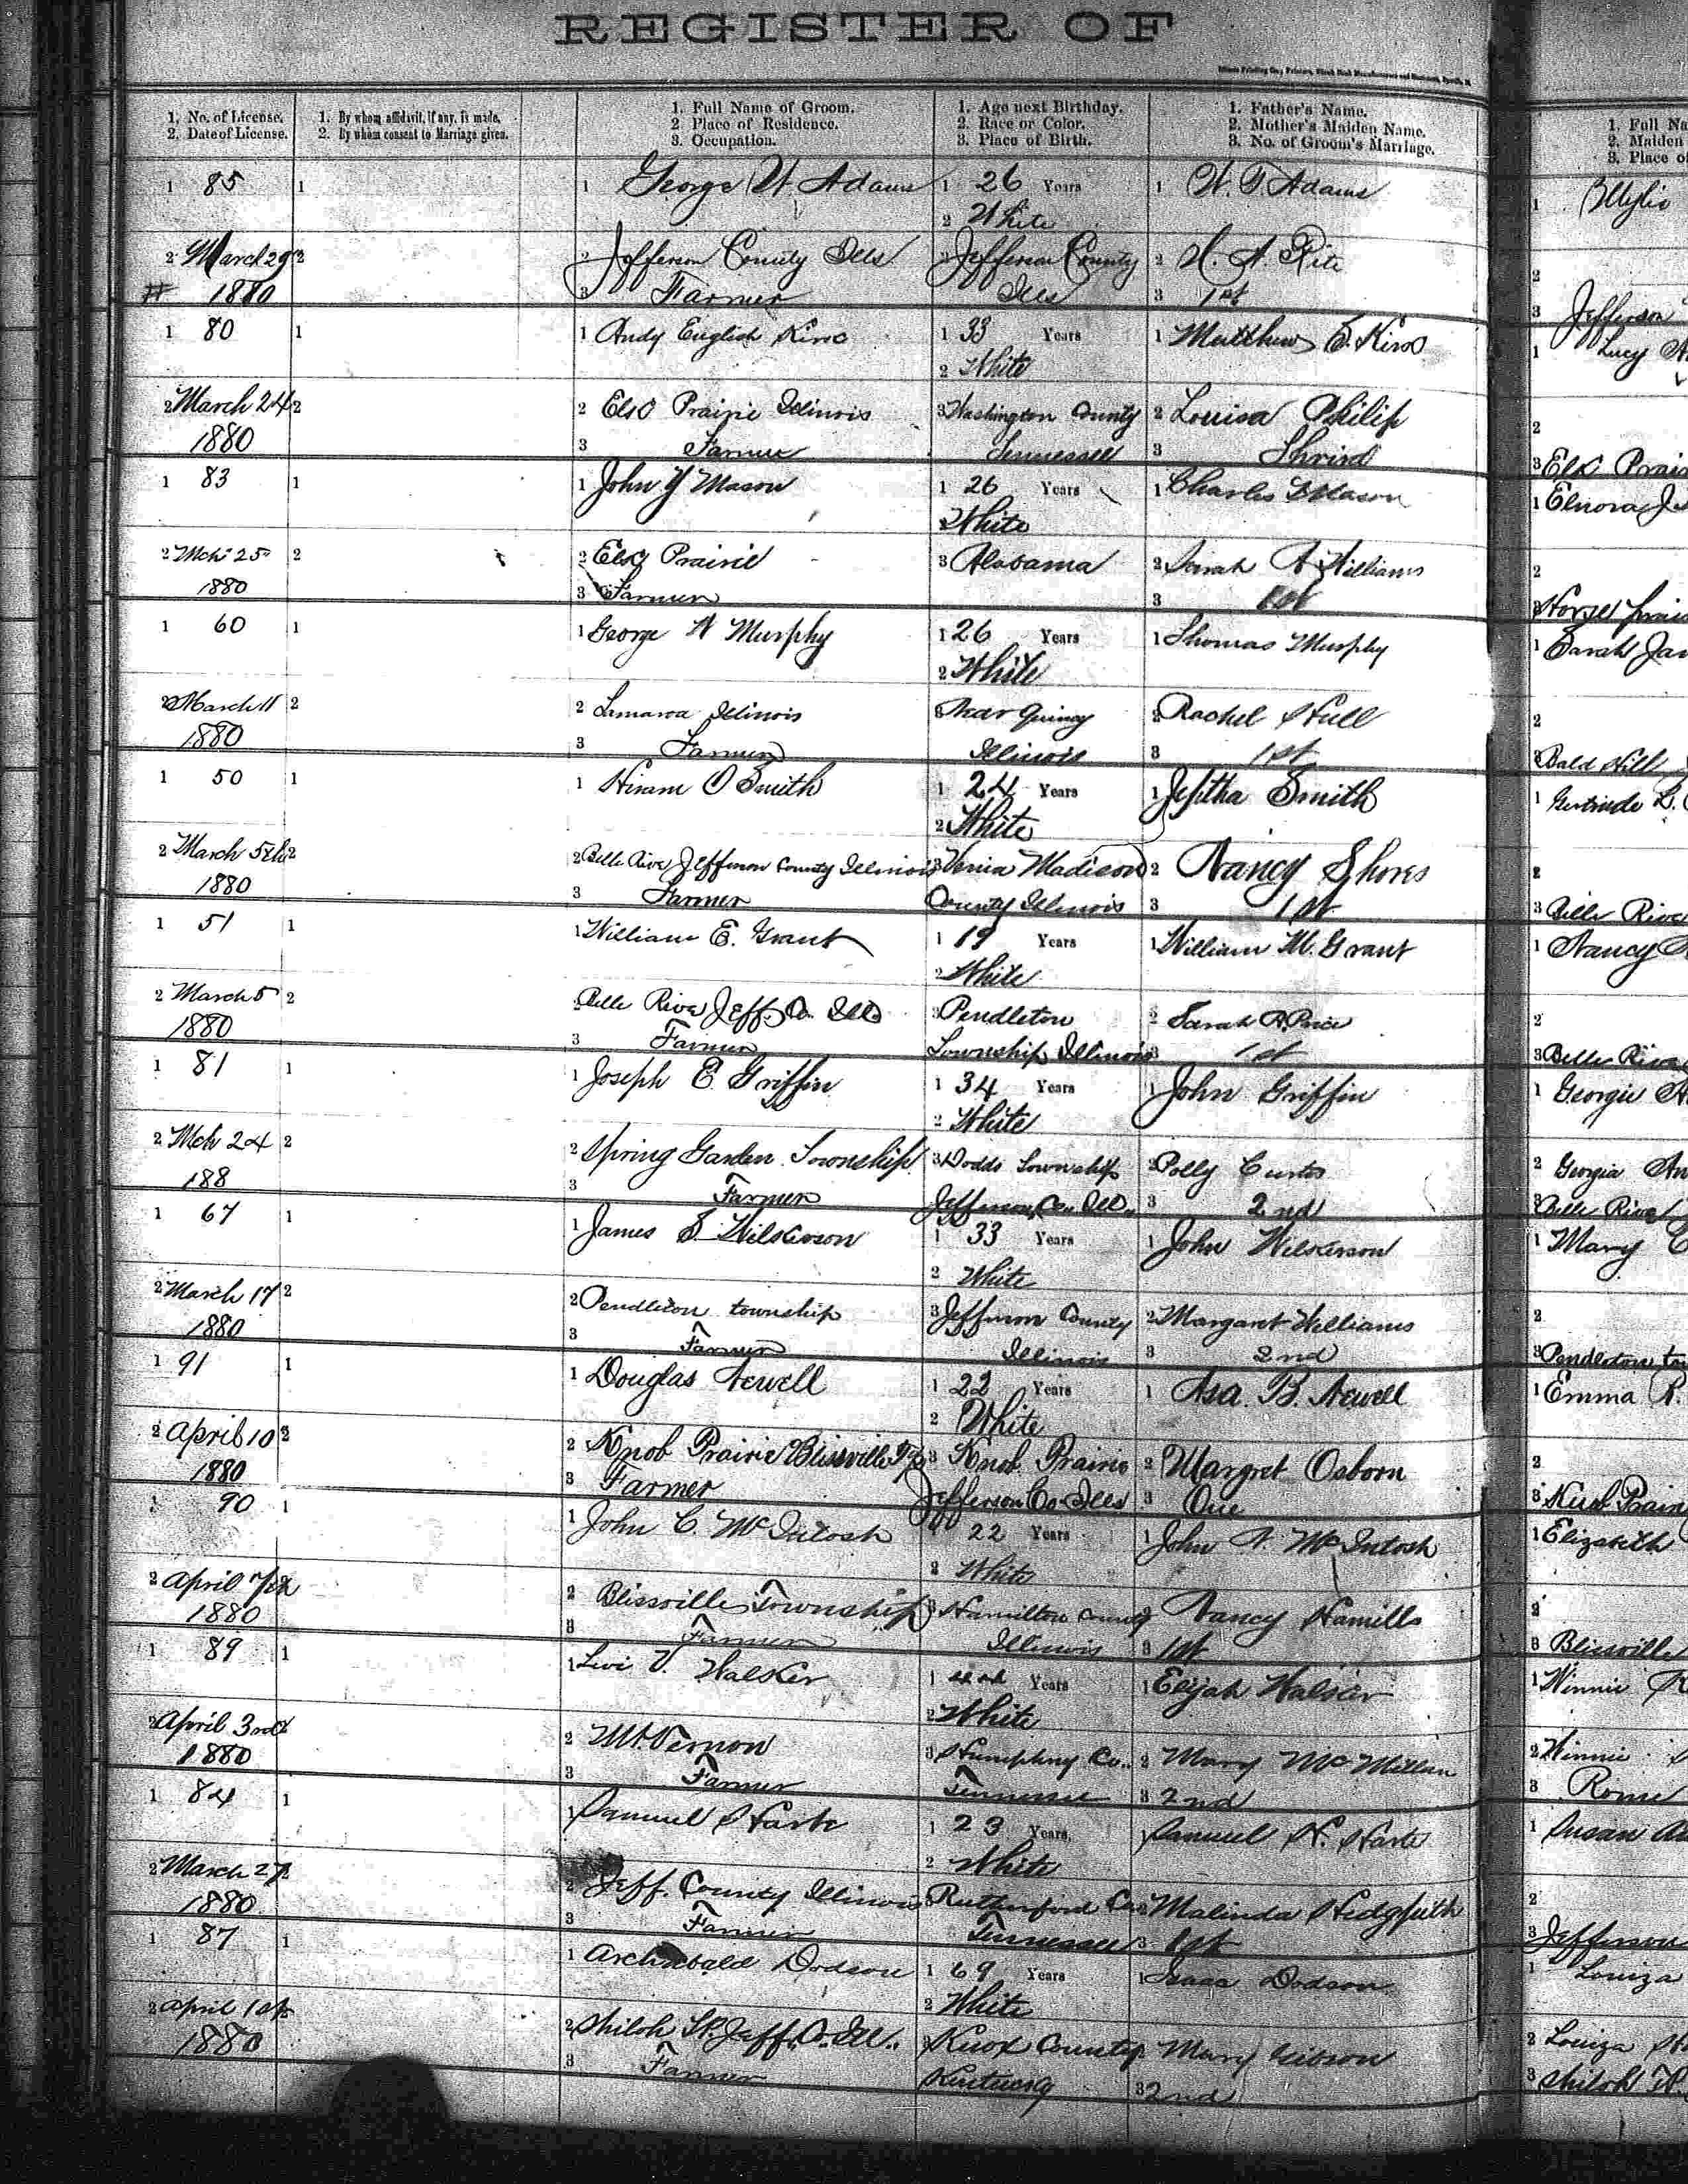 REGISTER OF
1. No. of License. 1. By whom affidavit, if any, is made. 1. Full Name of Groom. 1. Age next Birthday. 1. Father's Name. 1. Full Na
2. Date of License. 2. By whom consent to Marriage given. 2 Place of Residence. 2. Race or Color. 2. Mother's Maiden Name. 2. Maiden
3. Occupation. 3. Place of Birth. 3. No. of Groom's Marriage. 3. Place of
1 85 1 1 George W Adams 1 26 Years 1 Adams 1
2 White
2 March 29 2 2 Jefferson County Ills Jefferson County 2 2
1880 3 Farmer Ills 3 1st 3 Jefferson
1 80 1 1 Andy English King 1 33 Years 1 Matthew E. King 1 Lucy
2 White
2 March 24 2 2 Elk Prairie Illinois 3 Washington County 2 Louisa Philip 2
1880 3 Farmer Tennessee 3 Third 3 Elk Prai
1 83 1 1 John Y Mason 1 26 Years 1 Charles Mason 1 Elnora Je
2 White
2 Mch 25 2 2 Elk Prairie 3 Alabama 2 Sarah A Williams 2
1880 3 Farmer 3 1st Horse prai
1 60 1 1 George W Murphy 1 26 Years 1 Thomas Murphy 1 Sarah Jan
2 White
2 March 11 2 2 Tamaroa Illinois 3 Near Quincy 2 Rachel Hull 2
1880 3 Farmer Illinois 3 1st 3 Bald Hill
1 50 1 1 Hiram O Smith 1 24 Years 1 Jeptha Smith 1 Gertrude L.
2 White
2 March 5th 2 2 Belle Rive Jefferson County Illinois 3 Venia Madison 2 Nancy Shores 2
1880 3 Farmer County Illinois 3 1st 3 Belle Rive
1 51 1 1 William E. Grant 1 19 Years 1 William M. Grant 1 Nancy
2 White
2 March 5 2 2 Belle Rive Jeff. Co. Ills 3 Pendleton 2 Sarah A. Price 2
1880 3 Farmer Township Illinois 3 1st 3 Belle Rive
1 81 1 1 Joseph E Griffin 1 34 Years 1 John Griffin 1 Georgie A
2 White
2 Mch 24 2 2 Spring Garden Township 3 Dodds Township 2 Polly Curtis 2 Georgia An
188 3 Farmer Jefferson Co. Ill. 3 2nd 3 Belle Rive
1 67 1 1 James S. Wilkerson 1 33 Years 1 John Wilkerson 1 Mary
2 White
2 March 17 2 2 Pendleton township 3 Jefferson County 2 Margaret Williams 2
1880 3 Farmer Illinois 3 2nd 3 Pendleton to
1 91 1 1 Douglas Newell 1 22 Years 1 Asa. B. Newell 1 Emma R.
2 White
2 April 10 2 2 Knob Prairie Blissville Tp 3 Knob Prairie 2 Margret Osborn 2
1880 3 Farmer Jefferson Co Ills 3 One 3 Knob Prairi
1 90 1 1 John C. McIntosh 1 22 Years 1 John A. McIntosh 1 Elizabeth
2 White
2 April 7th 2 2 Blissville Township 3 Hamilton County 2 Nancy Hamills 2
1880 3 Farmer Illinois 3 1st 3 Blissville
1 89 1 1 Levi V. Walker 1 44 Years 1 Elijah Walker 1 Winnie
2 White
2 April 3rd 2 2 Mt. Vernon 3 Humphrey Co. 2 Mary McMillan 2 Winnie
1880 3 Farmer Tennessee 3 2nd 3 Rome
1 84 1 1 Samuel Harte 1 23 Years 1 Samuel H. Harte 1 Susan
2 White
2 March 27 2 2 Jeff. County Illinois Rutherford Co. 2 Malinda Hedgpeth 2
1880 3 Farmer Tennessee 3 1st 3 Jefferson
1 87 1 1 Archabald Dodson 1 69 Years 1 Isaac Dodson 1 Louiza
2 White
2 April 1st 2 Shiloh Tp. Jeff. Co. Ill. Knox County 2 Mary Gibson 2 Louiza
1880 3 Farmer Kentucky 3 2nd 3 Shiloh